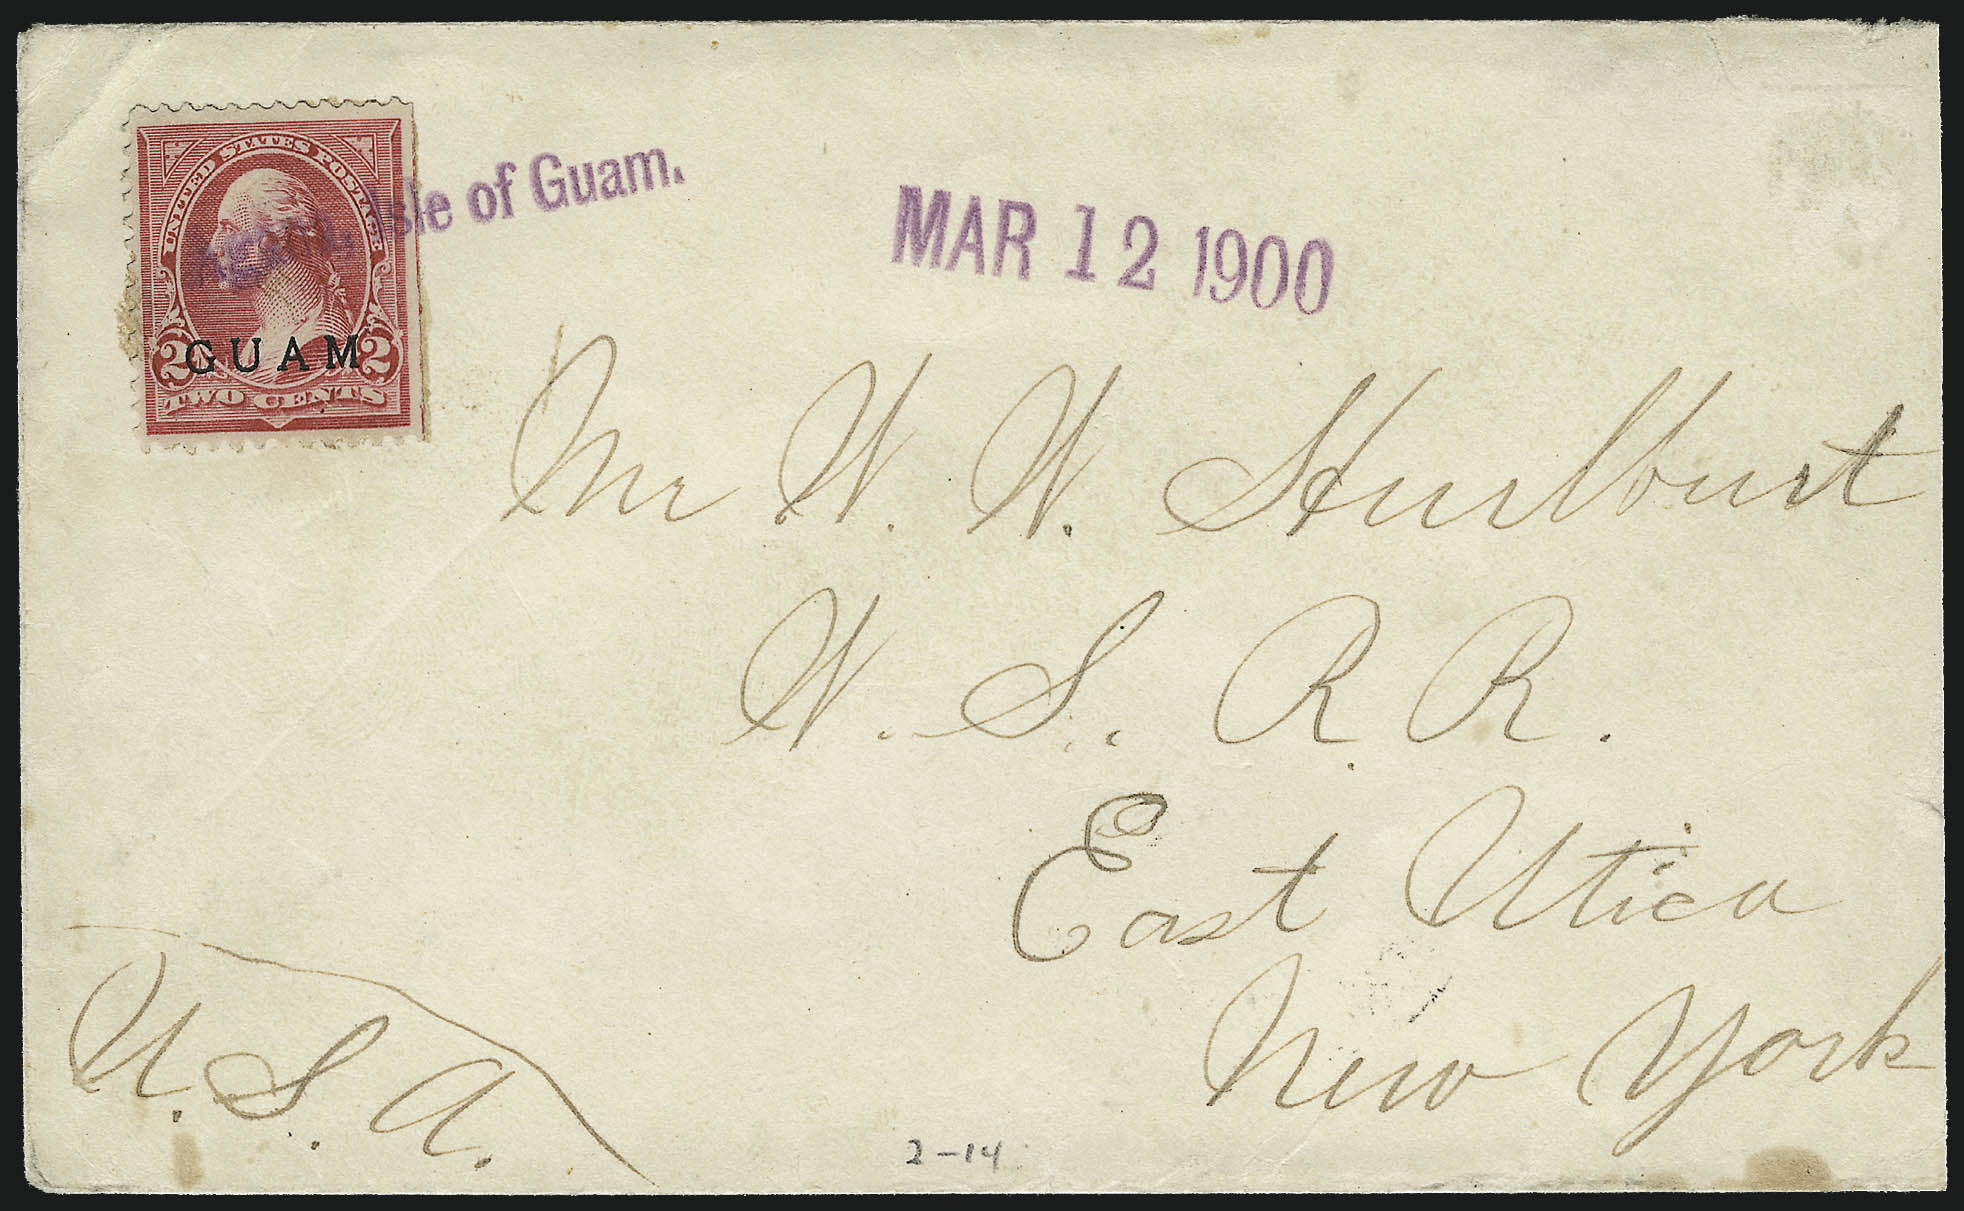 UNITED STATES POSTAGE
Isle of Guam.
MAR 12 1900
2 GUAM 2
TWO CENTS
Mr W. W. Hurlburt
W. S. R R.
East Utica
New York
U. S. A.
2-14